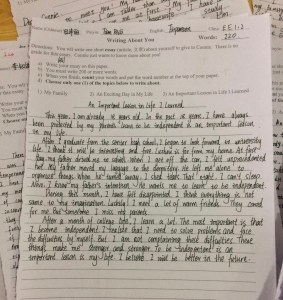 Writing About You
Directions: You will write one short essay about yourself to give to
a) Write your essay on this paper.
b) You must write 200 or more words.
c) When you finish, count your words and put the word number at the top of your paper.
d) Choose only one (1) of the topics below to write about.
1) My Family 2) An Exciting Day in My Life 3) An Important Lesson in Life I Learned
Words: 220
An Important Lesson in Life I Learned
This year, I am already 18 years old. In the past 18 years, I have always
been protected by my parents. Learn to be independent is an important lesson
in my life.
After I graduate from the senior high school, I began to look forward to university
life. I think it will be interesting and free. School is far from my home. At first
day, my father drived me to school. When I got off the car, I felt unprecedented
fear. My father moved my luggage to the dormitory. He left me alone to
organize things. When he turned away, I shed tears. That night, I can't sleep.
Alive, I know my father's intention. He wants me to learn to be independent.
During this month, I have felt disappointed. I think everything is not
same to my imagination. Luckily, I meet a lot of warm friends. They cared
for me. But sometimes I miss my parents.
After a month of college life, I learn a lot. The most important is that
I become independent. I realize that I need to solve problems and face
the difficulties by myself. But I am not complaining these difficulties. These
things make me stronger and stronger. To be independent is an
important lesson in my life. I believe I will be better in the future.